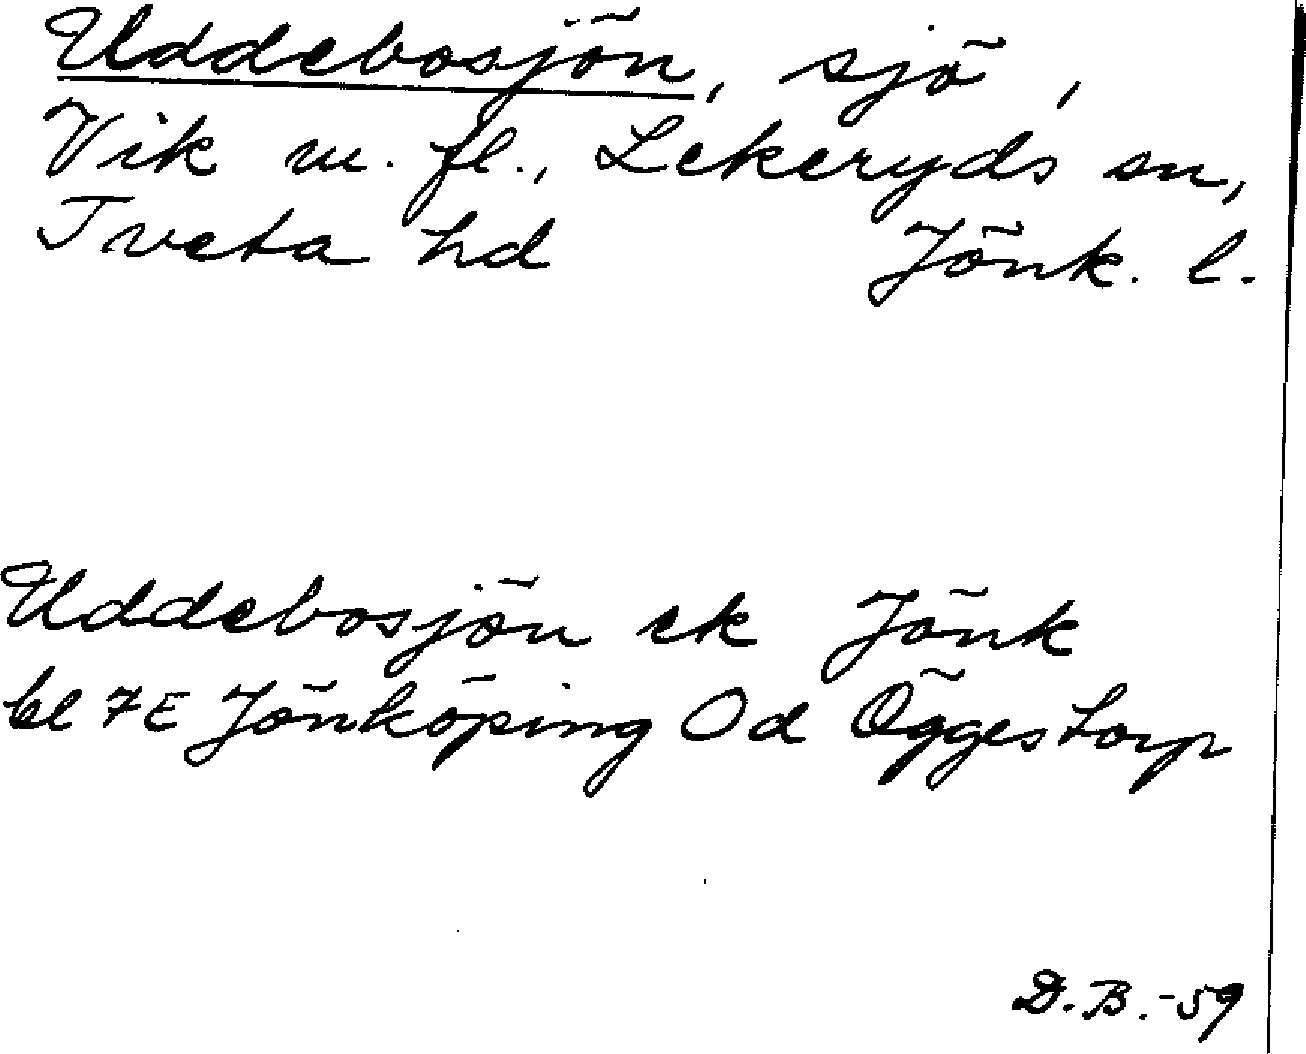 Uddebosjön, sjö,
Vik m. fl., Lekeryds sn,
Tveta hd Jönk. l.
Uddebosjön ek Jönk
bl 7E Jönköping Od Öggestorp
D.B.-59